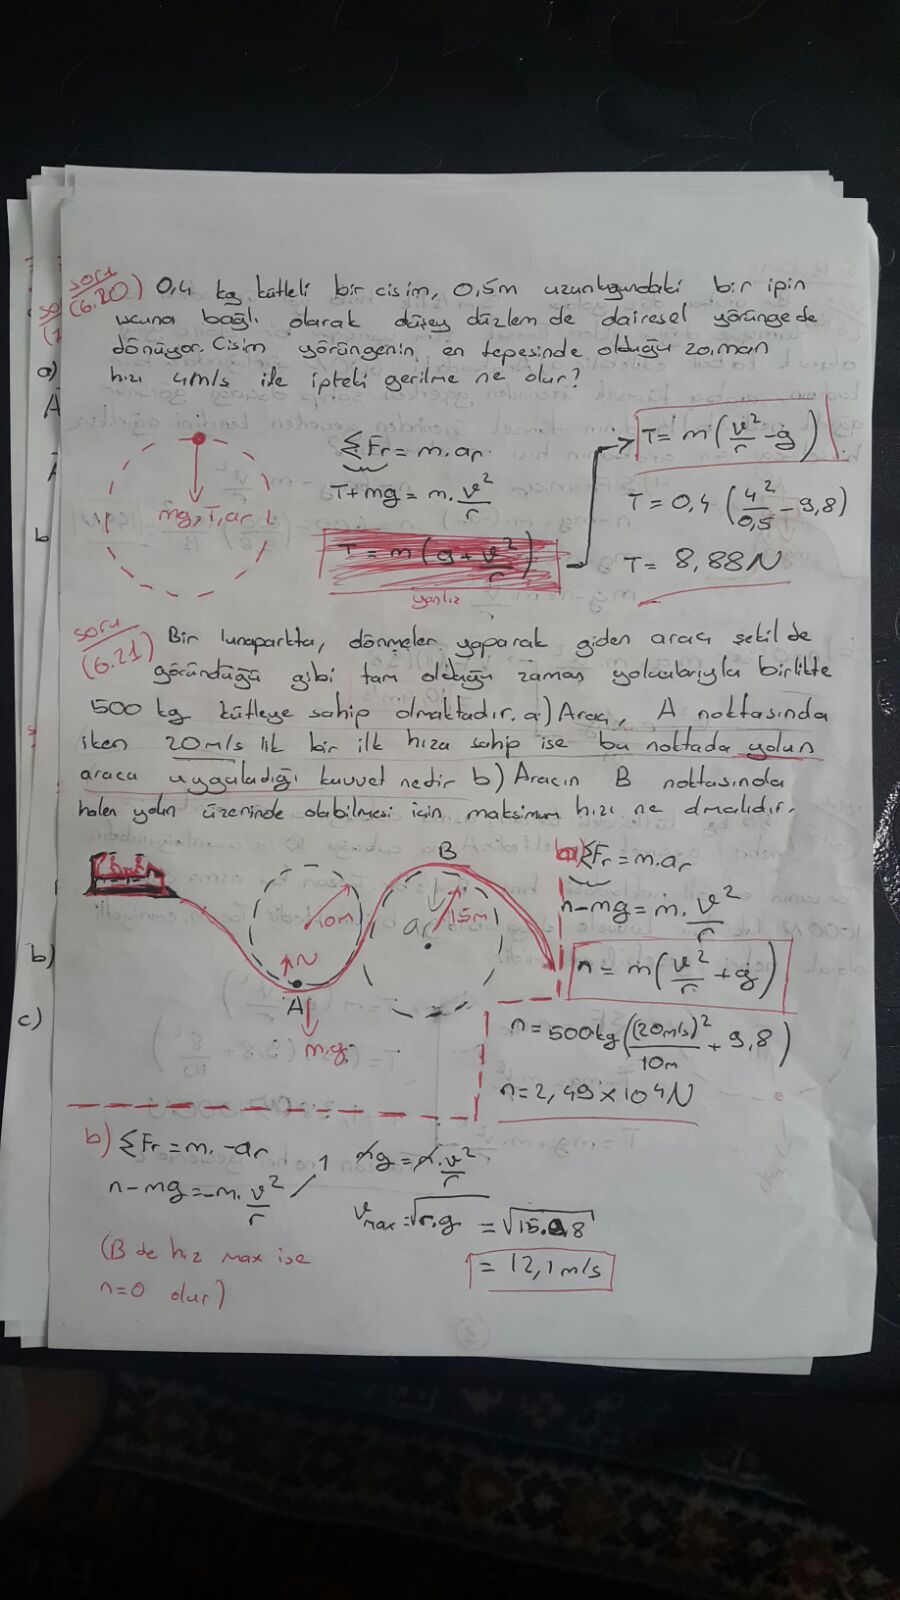 soru
(6.20) 0,4 kg kütleli bir cisim, 0,5m uzunluğundaki bir ipin
ucuna bağlı olarak düşey düzlemde dairesel yörüngede
dönüyor. Cisim yörüngenin en tepesinde olduğu zaman
hızı 4m/s ile ipteki gerilme ne olur?
a)
b
mg, T, ar
ΣFr = m.ar
T+mg = m.v²/r
T = m(g + v²/r)
yanlış
T = m(v²/r - g)
T = 0,4 (4²/0,5 - 9,8)
T = 8,88N
soru
(6.21) Bir lunaparkta, dönmeler yaparak giden aracı şekilde
göründüğü gibi tam olduğu zaman yolcularıyla birlikte
500 kg kütleye sahip olmaktadır. a) Araç, A noktasında
iken 20m/s lik bir ilk hıza sahip ise bu noktada yolun
araca uyguladığı kuvvet nedir b) Aracın B noktasında
halen yolun üzerinde olabilmesi için maksimum hızı ne olmalıdır.
B
10m
15m
ar
N
A
m.g
b)
c)
a) ΣFr = m.ar
n-mg = m.v²/r
n = m(v²/r + g)
n = 500kg((20m/s)²/10m + 9,8)
n = 2,49x104N
b) ΣFr = m.-ar
n-mg = -m.v²/r
(B de hız max ise
n=0 olur)
mg = m.v²/r
Vmax = √r.g = √15.9,8
= 12,1m/s
3